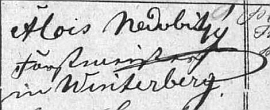 Alois Nedobitÿ
Forstmeister
in Winterberg